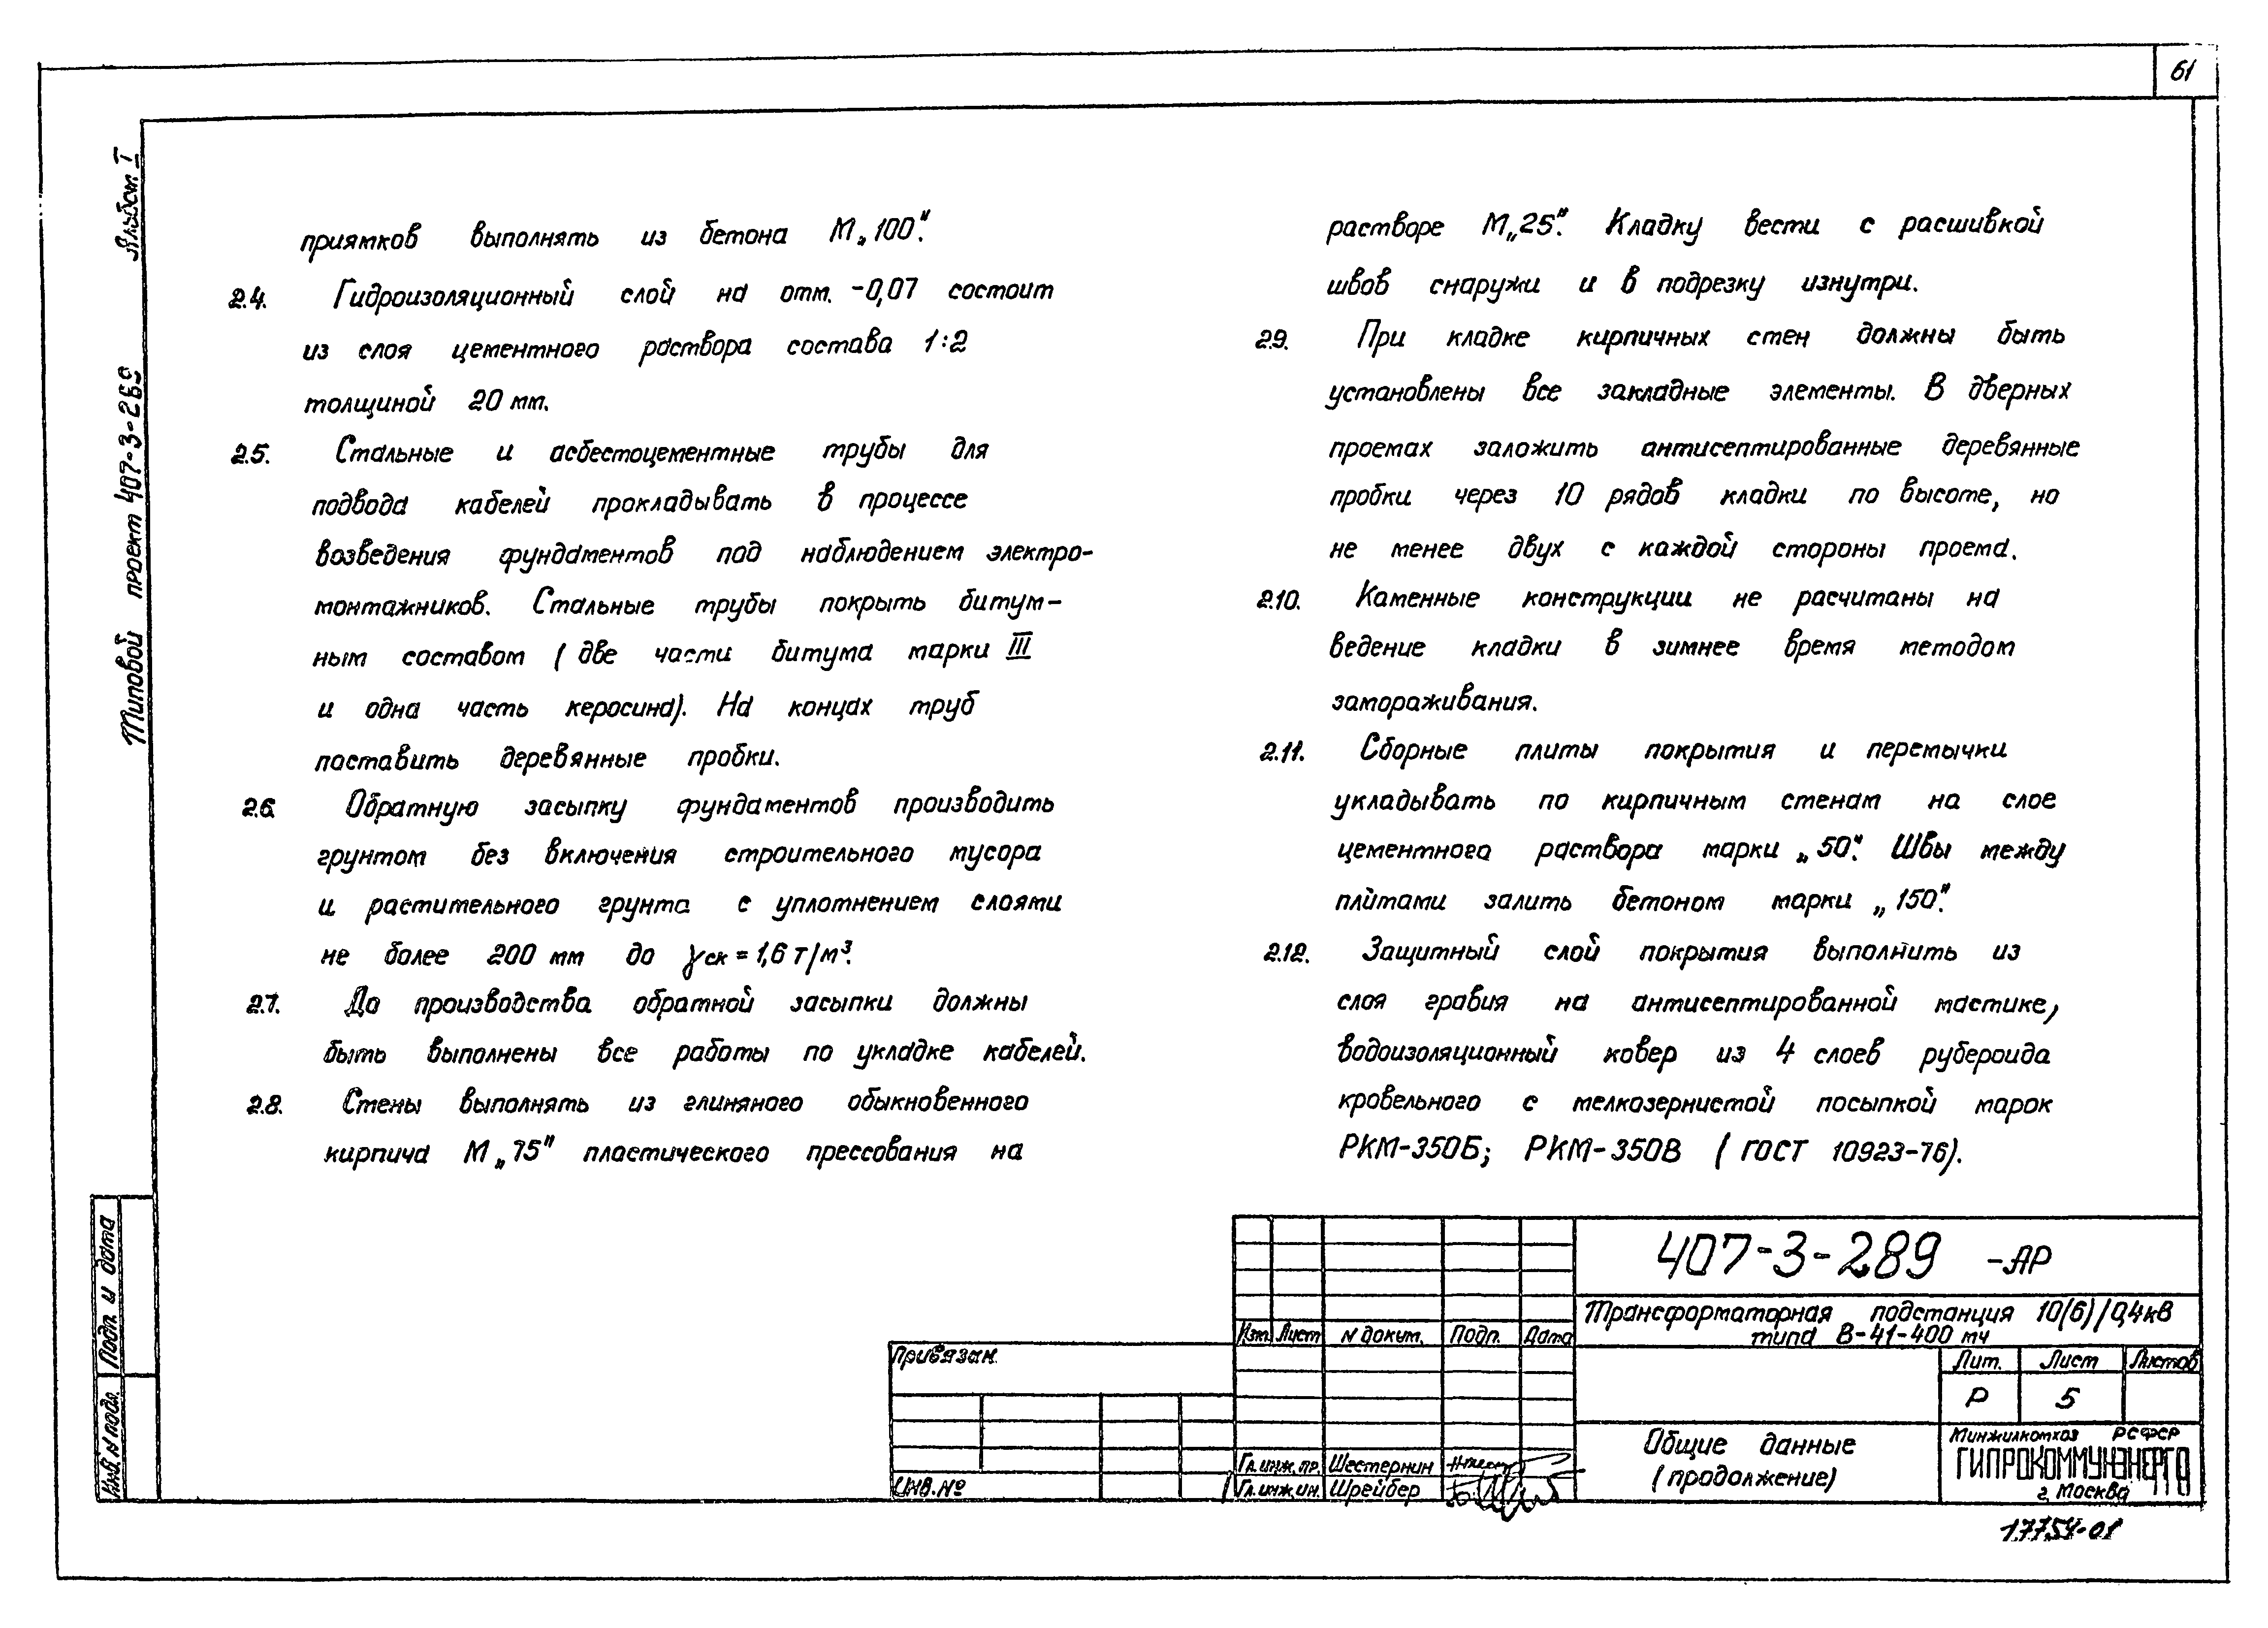 61
Альбом I
Типовой проект 407-3-289
приямков выполнять из бетона М„100".
2.4. Гидроизоляционный слой на отм. -0,07 состоит
из слоя цементного раствора состава 1:2
толщиной 20 мм.
2.5. Стальные и асбестоцементные трубы для
подвода кабелей прокладывать в процессе
возведения фундаментов под наблюдением электро-
монтажников. Стальные трубы покрыть битум-
ным составом (две части битума марки III
и одна часть керосина). На концах труб
поставить деревянные пробки.
2.6. Обратную засыпку фундаментов производить
грунтом без включения строительного мусора
и растительного грунта с уплотнением слоями
не более 200 мм до γск = 1,6 т/м³.
2.7. До производства обратной засыпки должны
быть выполнены все работы по укладке кабелей.
2.8. Стены выполнять из глиняного обыкновенного
кирпича М„75" пластического прессования на
растворе М„25". Кладку вести с расшивкой
швов снаружи и в подрезку изнутри.
2.9. При кладке кирпичных стен должны быть
установлены все закладные элементы. В дверных
проемах заложить антисептированные деревянные
пробки через 10 рядов кладки по высоте, но
не менее двух с каждой стороны проема.
2.10. Каменные конструкции не расчитаны на
ведение кладки в зимнее время методом
замораживания.
2.11. Сборные плиты покрытия и перемычки
укладывать по кирпичным стенам на слое
цементного раствора марки „50". Швы между
плитами залить бетоном марки „150".
2.12. Защитный слой покрытия выполнить из
слоя гравия на антисептированной мастике,
водоизоляционный ковер из 4 слоев рубероида
кровельного с мелкозернистой посыпкой марок
РКМ-350Б; РКМ-350В (ГОСТ 10923-76).
Подп. и дата
Инв. N подл.
407-3-289 -АР
Трансформаторная подстанция 10(6)/0,4кВ
типа В-41-400 м4
Изм. Лист N докум. Подп. Дата
Привязан
Инв. №
Гл. инж. пр. Шестернин
Гл. инж. ин. Шрейбер
Лит. Лист Листов
Р 5
Общие данные
(продолжение)
Минжилкомхоз РСФСР
ГИПРОКОММУНЭНЕРГО
г. Москва
17754-01